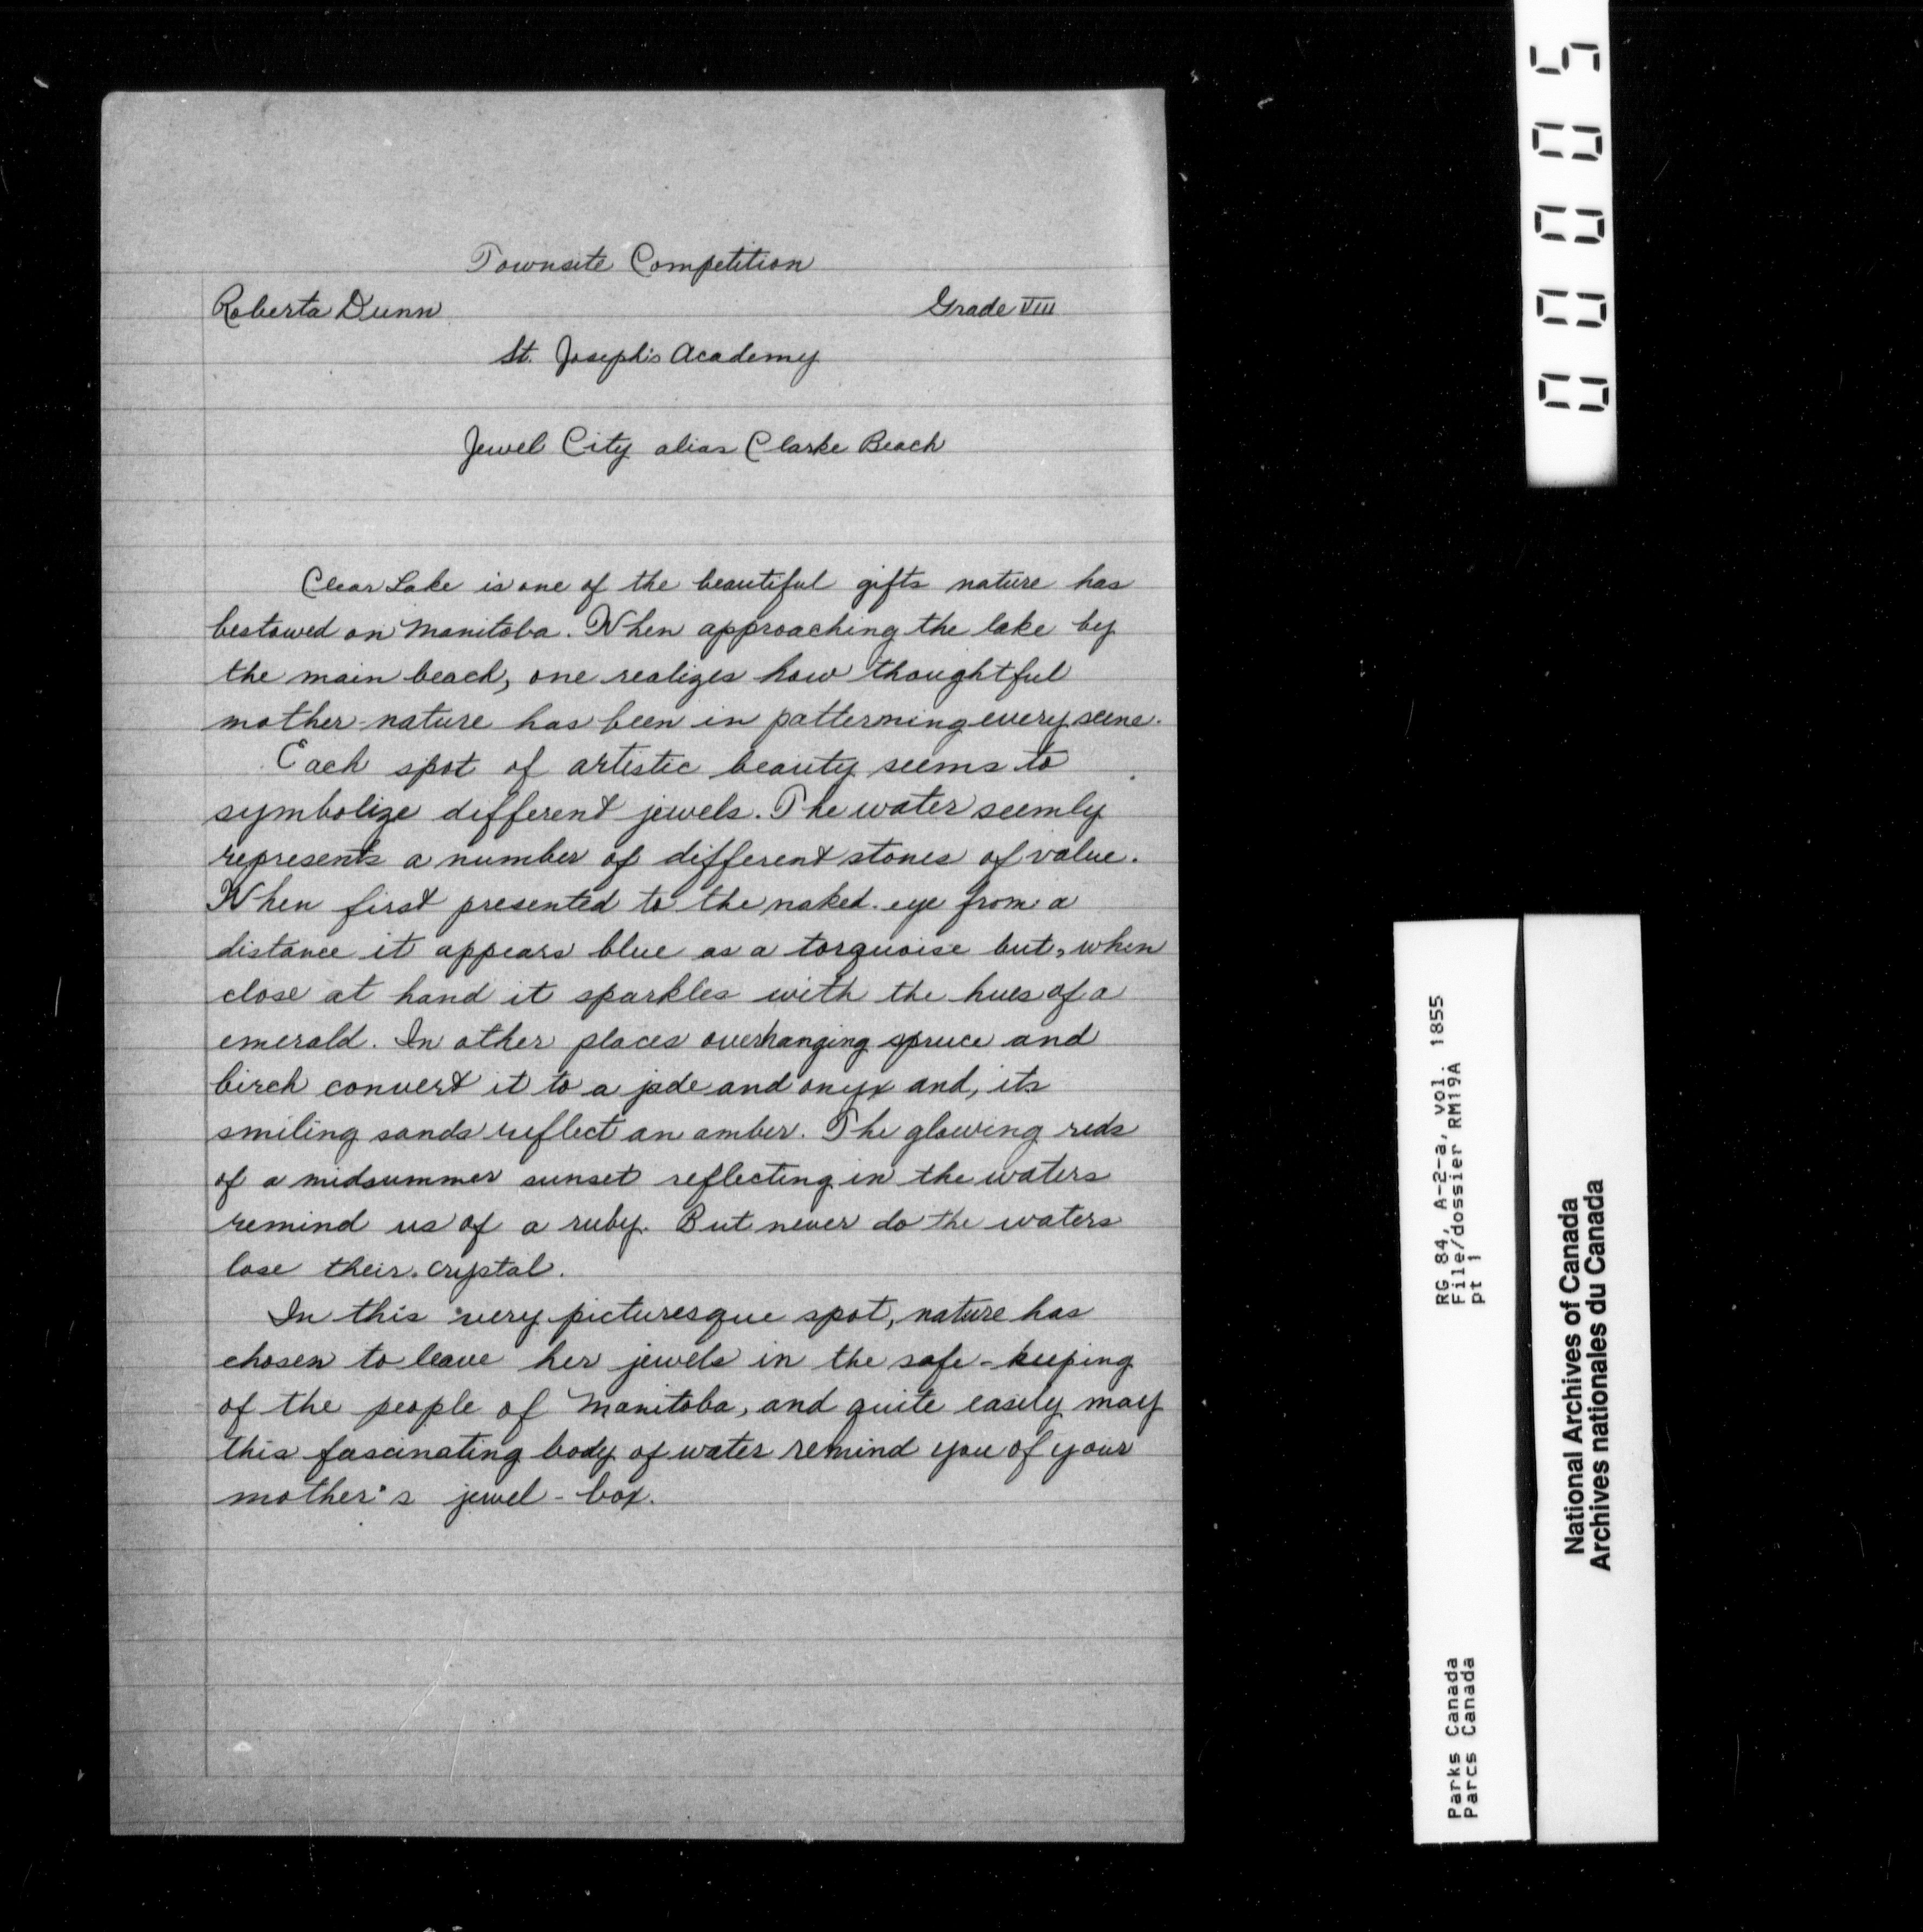 Townsite Competition
Roberta Dunn Grade VIII
St. Joseph's Academy
Jewel City alias Clarke Beach
Clear Lake is one of the beautiful gifts nature has
bestowed on Manitoba. When approaching the lake by
the main beach, one realizes how thoughtful
mother-nature has been in patterning every scene.
Each spot of artistic beauty seems to
symbolize different jewels. The water seemly
represents a number of different stones of value.
When first presented to the naked-eye from a
distance it appears blue as a torquoise but, when
close at hand it sparkles with the hues of a
emerald. In other places overhanging spruce and
birch convert it to a jade and onyx and, its
smiling sands reflect an amber. The glowing reds
of a midsummer sunset reflecting in the waters
remind us of a ruby. But never do the waters
lose their crystal.
In this very picturesque spot, nature has
chosen to leave her jewels in the safe-keeping
of the people of Manitoba, and quite easily may
this fascinating body of water remind you of your
mother's jewel-box.
00005
RG 84, A-2-a, vol. 1855
File/dossier RM19A
pt 1
Parks Canada
Parcs Canada
National Archives of Canada
Archives nationales du Canada